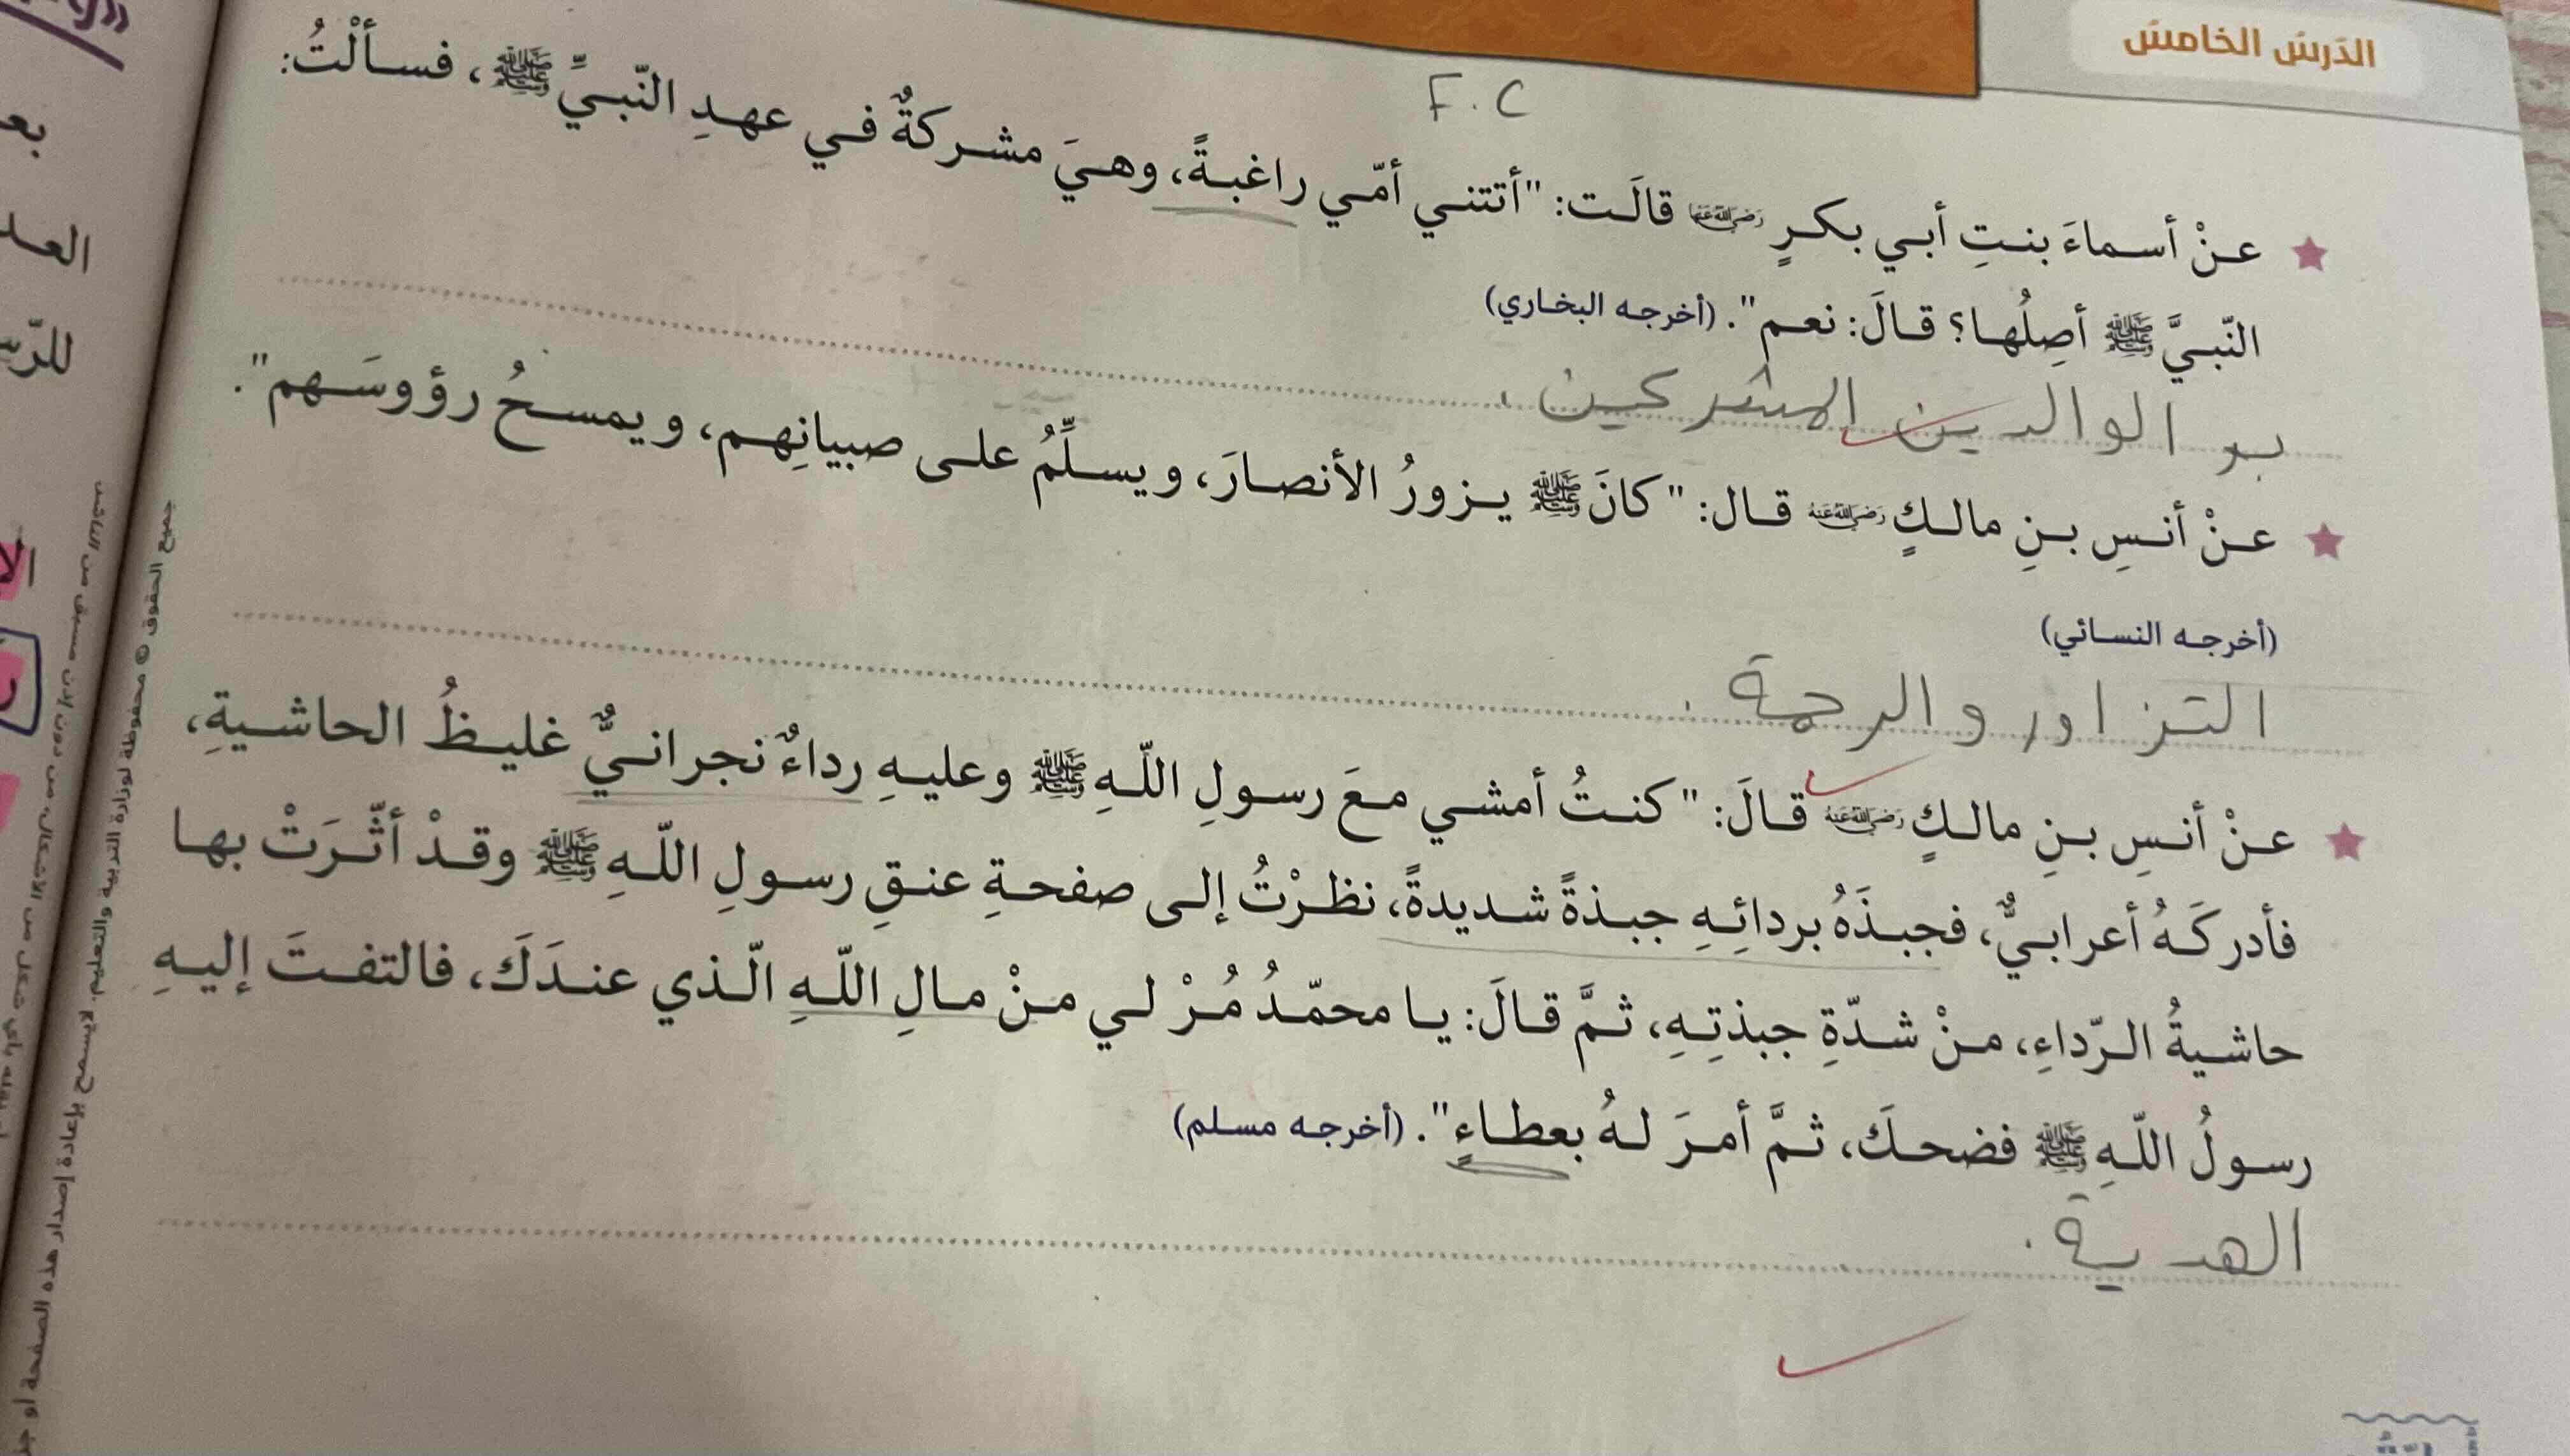 الدّرسُ الخامسُ
F.C
عنْ أسماءَ بنتِ أبي بكرٍ رضي الله عنها قالَت: "أتتني أمّي راغبةً، وهيَ مشركةٌ في عهدِ النّبيِّ ﷺ، فسألْتُ:
النّبيَّ ﷺ أصِلُها؟ قالَ: نعم". (أخرجه البخاري)
بر الوالدين المشركين.
عنْ أنسِ بنِ مالكٍ رضي الله عنه قال: "كانَ ﷺ يزورُ الأنصارَ، ويسلِّمُ على صبيانِهم، ويمسحُ رؤوسَهم".
(أخرجه النسائي)
التزاور والرحمة.
عنْ أنسِ بنِ مالكٍ رضي الله عنه قالَ: "كنتُ أمشي معَ رسولِ اللّهِ ﷺ وعليهِ رداءٌ نجرانيٌّ غليظُ الحاشيةِ،
فأدركَهُ أعرابيٌّ، فجبذَهُ بردائِهِ جبذةً شديدةً، نظرْتُ إلى صفحةِ عنقِ رسولِ اللّهِ ﷺ وقدْ أثَّرَتْ بها
حاشيةُ الرّداءِ، منْ شدّةِ جبذتِهِ، ثمَّ قالَ: يا محمّدُ مُرْ لي منْ مالِ اللّهِ الّذي عندَكَ، فالتفتَ إليهِ
رسولُ اللّهِ ﷺ فضحكَ، ثمَّ أمرَ لهُ بعطاءٍ". (أخرجه مسلم)
الهدية.
بع
العد
جميع الحقوق © محفوظة لوزارة التربية والتعليم. لا يسمح بإعادة إصدار هذه الصفحة أو